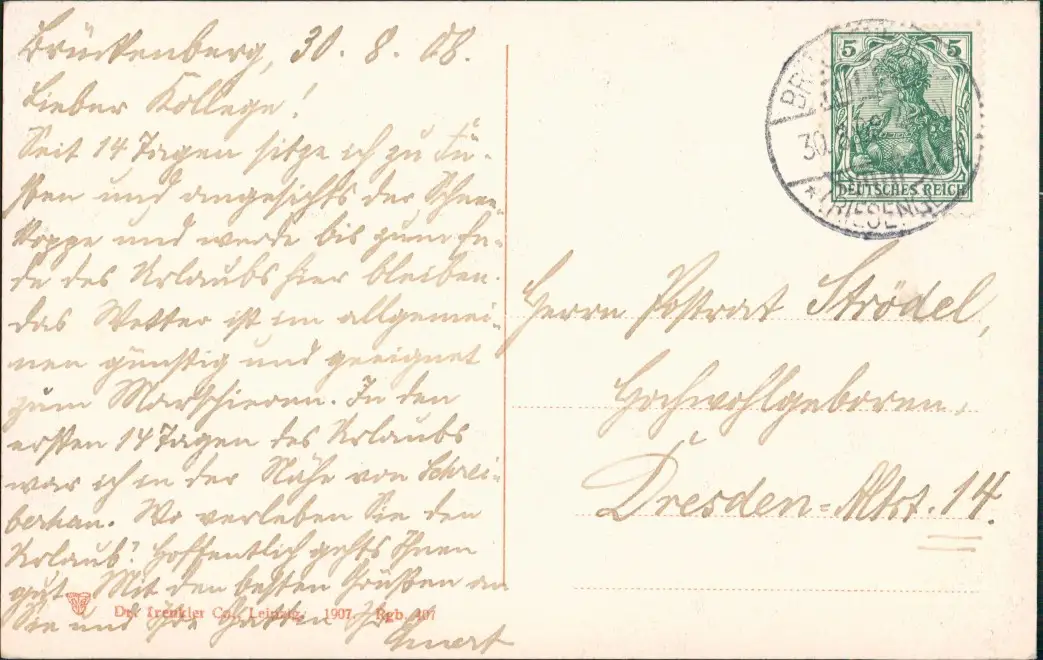 Brückenberg, 30. 8. 08.
Lieber Kollege!
Seit 14 Tagen sitze ich zu Fü-
ßen und angesichts der Schnee-
koppe und werde bis zum En-
de des Urlaubs hier bleiben.
Das Wetter ist im allgemei-
nen günstig und geeignet
zum Marschieren. In den
ersten 14 Tagen des Urlaubs
war ich in der Nähe von Schrei-
berhau. Wo verleben Sie den
Urlaub? Hoffentlich gehts Ihnen
gut. Mit den besten Grüßen an
Sie und Ihre
Dr. Trenkler Co., Leipzig. 1907. Rgb. 407
5 5
DEUTSCHES REICH
30.8.08
* (RIESENGE
Herrn Postrat Strödel,
Hochwohlgeboren,
Dresden-Altst. 14.